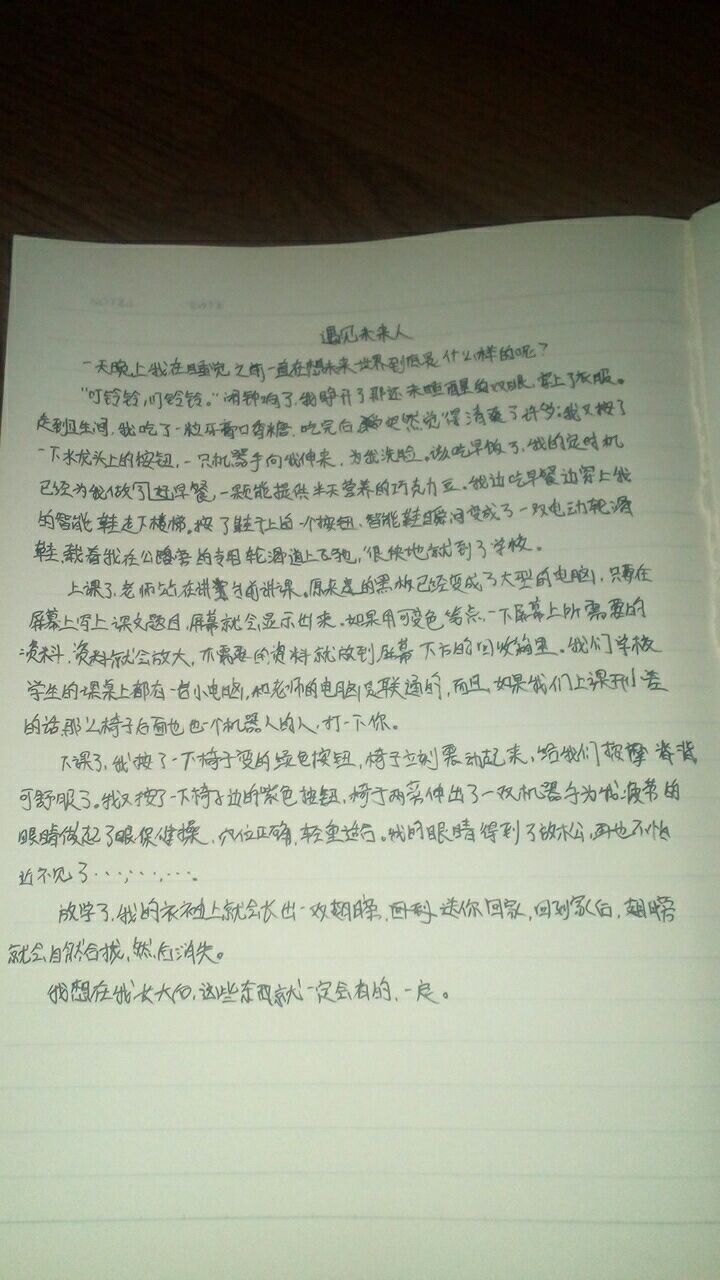 遇见未来人
一天晚上我在睡觉之前一直在想未来世界到底是什么样的呢？
“叮铃铃，叮铃铃。”闹钟响了，我睁开了那还未睡醒的双眼，穿上了衣服。
走到卫生间，我吃了一粒牙膏口香糖，吃完后突然觉得清爽了许多；我又按了
一下水龙头上的按钮，一只机器手向我伸来，为我洗脸。该吃早饭了，我的定时机
已经为我做可好早餐，一颗能提供半天营养的巧克力豆。我边吃早餐边穿上我
的智能鞋走下楼梯。按了鞋子上的一个按钮，智能鞋瞬间变成了一双电动轮滑
鞋，载着我在公路旁的专用轮滑道上飞驰，很快地就到了学校。
上课了，老师站在讲台前讲课。原来是的黑板已经变成了大型的电脑，只要在
屏幕上写上课文题目，屏幕就会显示出来。如果用可变色笔点一下屏幕上所需要的
资料，资料就会放大，不需要的资料就放到屏幕下方的回收箱里。我们学校
学生的课桌上都有一台小电脑，和老师的电脑是联通的，而且，如果我们上课开小差
的话，那么椅子后面也也一个机器人的人，打一下你。
下课了，我按了一下椅子变的绿色按钮，椅子立刻震动起来，给我们按摩脊背，
可舒服了。我又按了一下椅子边的紫色按钮，椅子两旁伸出了一双机器手为我疲劳的
眼睛做起了眼保健操，穴位正确，轻重适合。我的眼睛得到了放松，再也不怕
近不见了……，……。
放学了，我的衣袖上就会长出一双翅膀，送你回家，回到家后，翅膀
就会自然合拢，然后消失。
我想在我长大后，这些东西就一定会有的，一定。